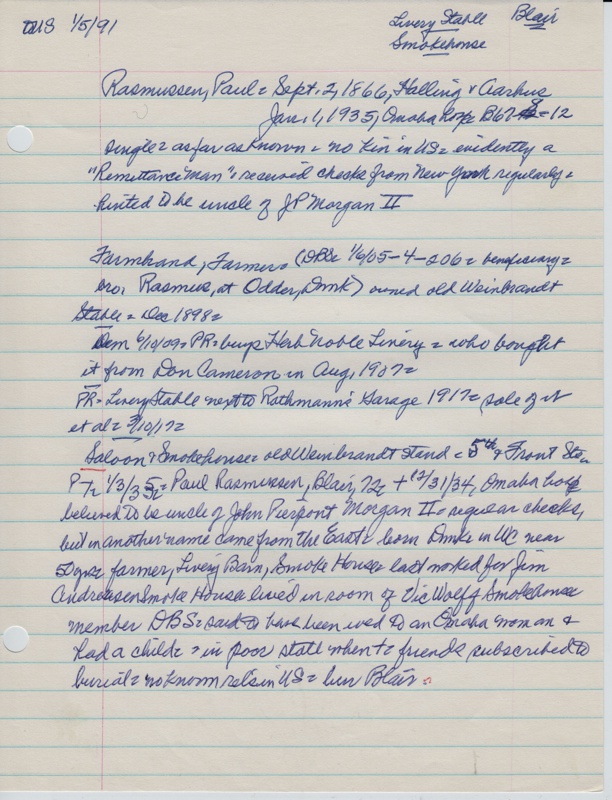 1/5/91
Livery Stable Blair
Smokehouse
Rasmussen, Paul = Sept. 2, 1866, Halling & Aarhus
Jan. 1, 1935, Omaha hosp B67 = 12
single = as far as known = no kin in US = evidently a
"Remittance Man" = received checks from New York regularly =
hinted to be uncle of J P Morgan II
Farmhand, Farmer = (DBS = 1/6/05-4-206 = beneficiary =
bro. Rasmus, at Odder, Dmk) owned old Weinbrandt
Stable = Dec 1898 =
Dem 6/10/09 = PR = buys Herb Noble Livery = who bought
it from Don Cameron in Aug, 1907 =
PR = Livery Stable next to Rathmann's Garage 1917 = sale of it
et al = 9/10/17 =
Saloon & Smokehouse = old Weinbrandt stand = 5th & Front Sts =
1/3/35 = Paul Rasmussen, Blair, 72 + 12/31/34, Omaha hosp
believed to be uncle of John Pierpont Morgan II = regular checks,
but in another name came from the East = born Dmk = in WC near
50 yrs = farmer, Livery Barn, Smoke House = last worked for Jim
Andreasen Smoke House lived in room of Vic Wolff Smokehouse
member DBS = said to have been wed to an Omaha woman &
had a child = in poor state when + = friends subscribed to
burial = no known rels in US = bur Blair =